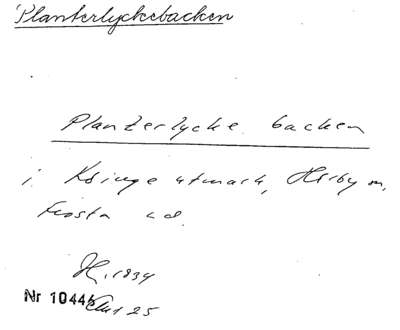 Planterlyckebacken
Planterlycke backen
i Köinge utmark, Hörby sn,
Frosta hd.
H. 1834
Nr 10446 Akt 25